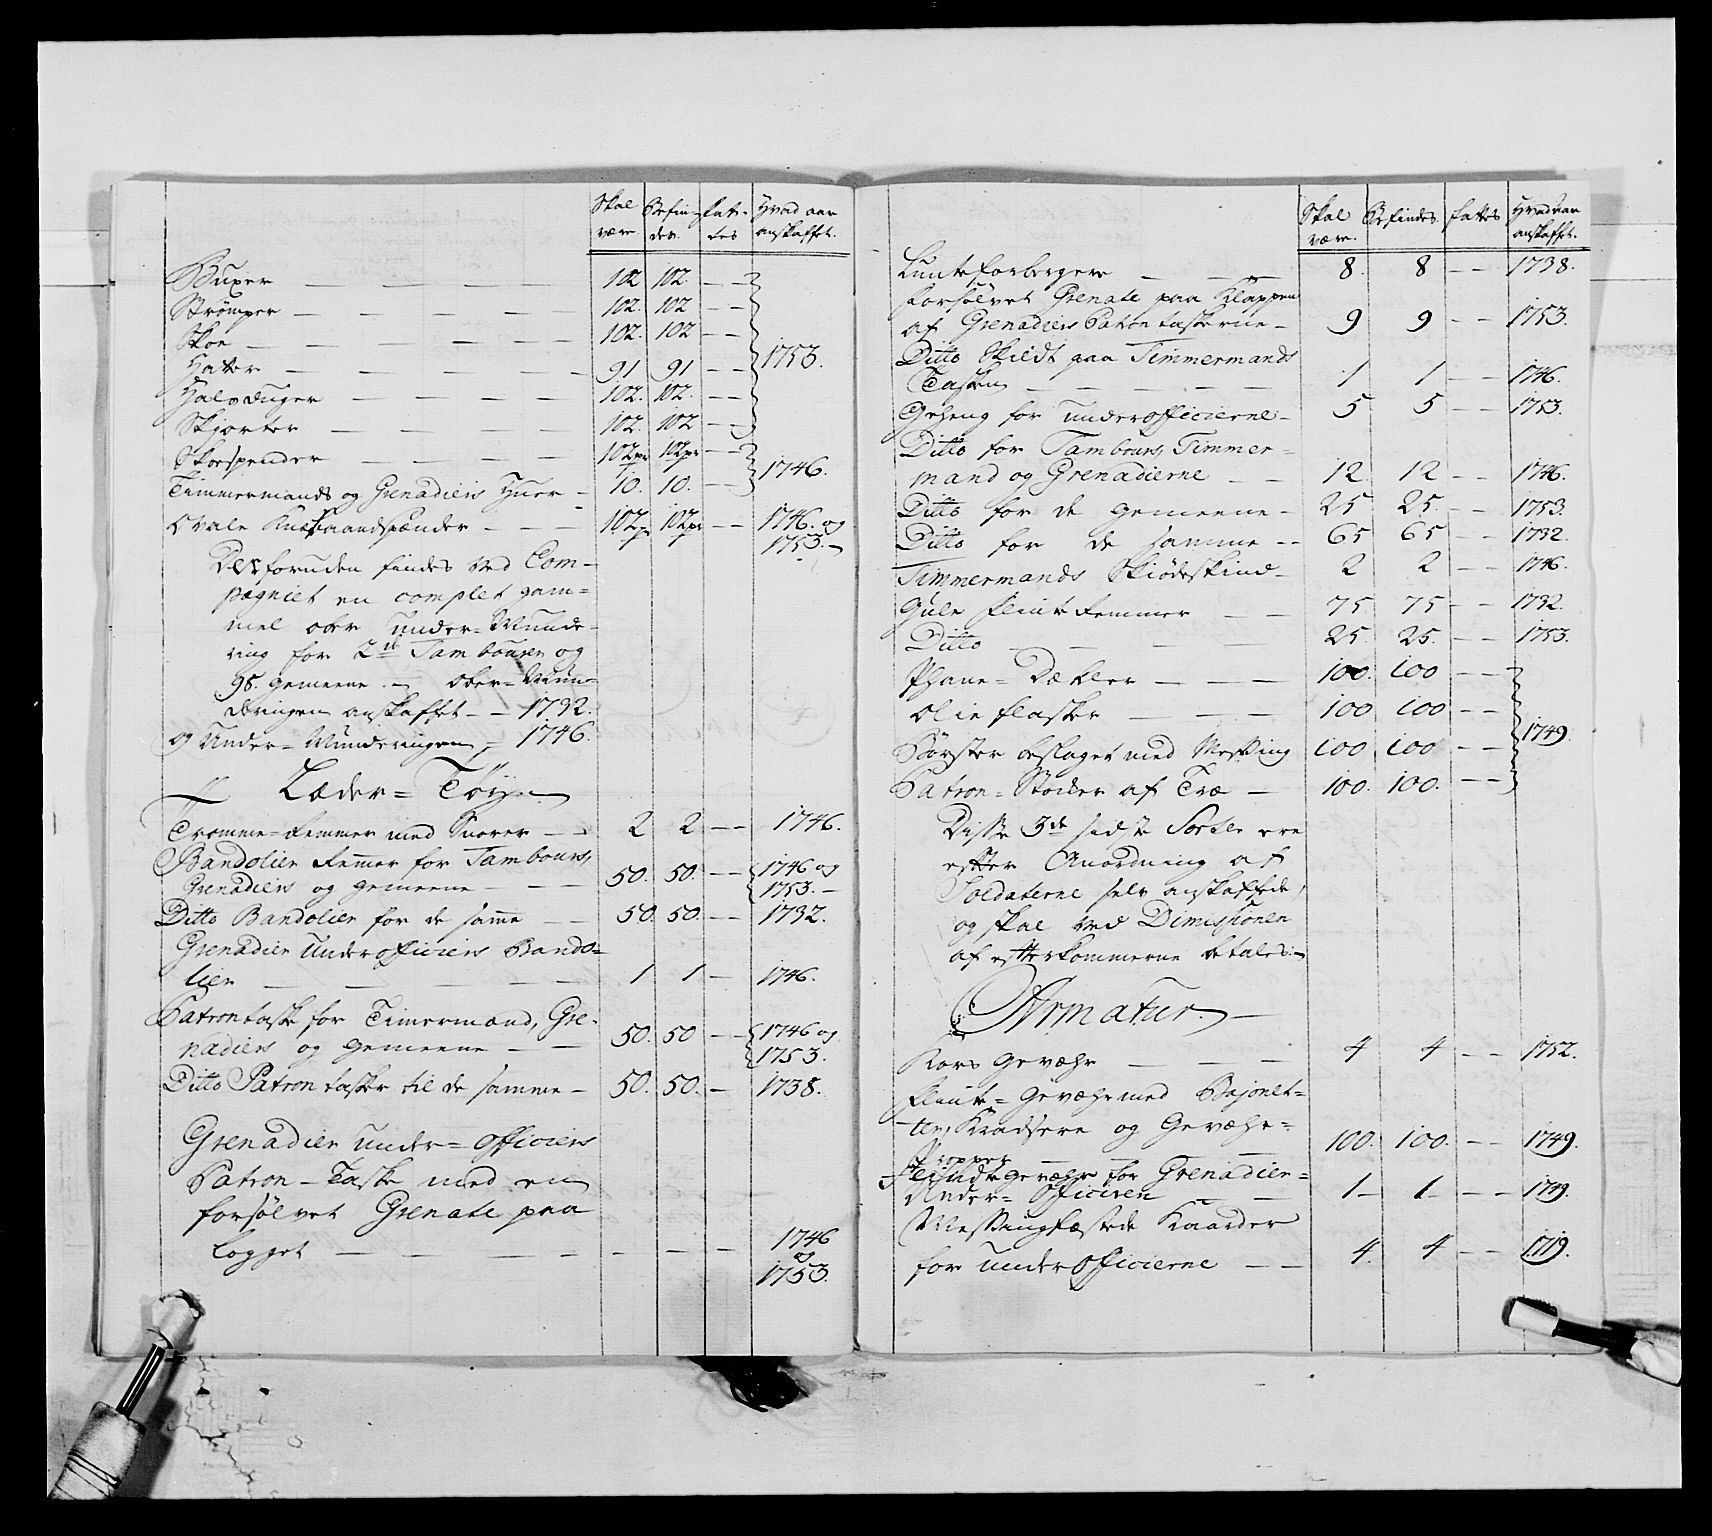 Skal være Befin-des. fat-tes Hvad aar anskaffet.
Buxer — — — — 102 102. — —
Strømper — — — — 102. 102 — —
Skoe — — — — 102. 102 — —
Hatter — — — — 91 91 — — 1753.
Halsduger — — — — 102. 102. — —
Skjorter — — — — 102. 102 — —
Skoespender — — — — 102pr 102pr — —
Timmermands og Grenadiers Huer — 10. 10. — — 1746.
Ovale Knæbaandspænder — — — 102pr 102pr — — 1746. og
1753. —
Desforuden findes ved Com-
pagniet en complet gam=
mel ober under=Munde-
ring for 2de Tambourer og
98. gemeene. — ober=Mun-
deringen anskaffet — 1732.
og Under=Munderingen, — 1746.
Læder=Tøy.
Tromme-Remmer med Snorer — — 2 2 — — 1746.
Bandolier Remer for Tambours,
Grenadiers og gemeene — — — 50. 50. — — 1746 og
1753. —
Ditto Bandolier for de samme — 50. 50. — — 1732.
Grenadier Underofficiers Bando=
lier — — — — 1 1 — 1746.
Patrontaske for Timermand, Gre-
nadiers og gemeene — — 50. 50 — — 1746 og
1753.
Ditto Patrontasker til de samme — 50. 50. — 1738.
Grenadier under=officiers
Patron-Taske med en
forsølvet Grenate paa
Logget — — — — — — — 1746
og
1753.
Skal være. Befindes fattes Hvad aar anskaffet.
Lunteforbergere — — — 8. 8 — — 1738.
forsølvet Grenate paa Klappen
af Grenadiers Patrontaskerne — 9 9 — — 1753.
Ditto Skildt paa Timmermands
Tasken — — — — 1 1 — — 1746.
Geheng for underofficierne — 5 5 — — 1753.
Ditto for Tambours, Timmer=
mand og Grenadierne — — 12 12 — — 1746.
Ditto for de gemeene — 25 25. — — 1753.
Ditto for de samme — — 65 65 — — 1732.
Timmermands Skiødeskind — 2 2 — — 1746.
Gule flint Remmer — — 75 75 — — 1732.
Ditto — — — 25. 25. — — 1753.
Phane=Dækler — — — 100. 100 — —
Olie flasker — — — 100 100 — —
Børster beslaget med Messing 100 100 — — 1749.
Patron=Stocker af Træ — 100. 100. — —
Disse 3de sidste Sorter ere
efter Anordning af
Soldaterne selv anskaffede,
og skal ved Dimissionen
af efterkommerne betales. —
Armatur. —
Kors Gevæhr — — — 4 4 — — 1752.
Flint=Gevæhr med Bajonet=
ter, Kradsere og Gevæhr=
Propper — — — 100. 100. — — 1749.
Flindtgevæhr for Grenadier=
Under=Officiren — — 1 — 1 — — — 1749.
Messingfæstede Kaarder
for underofficierne — — 4. 4 — — 1719.